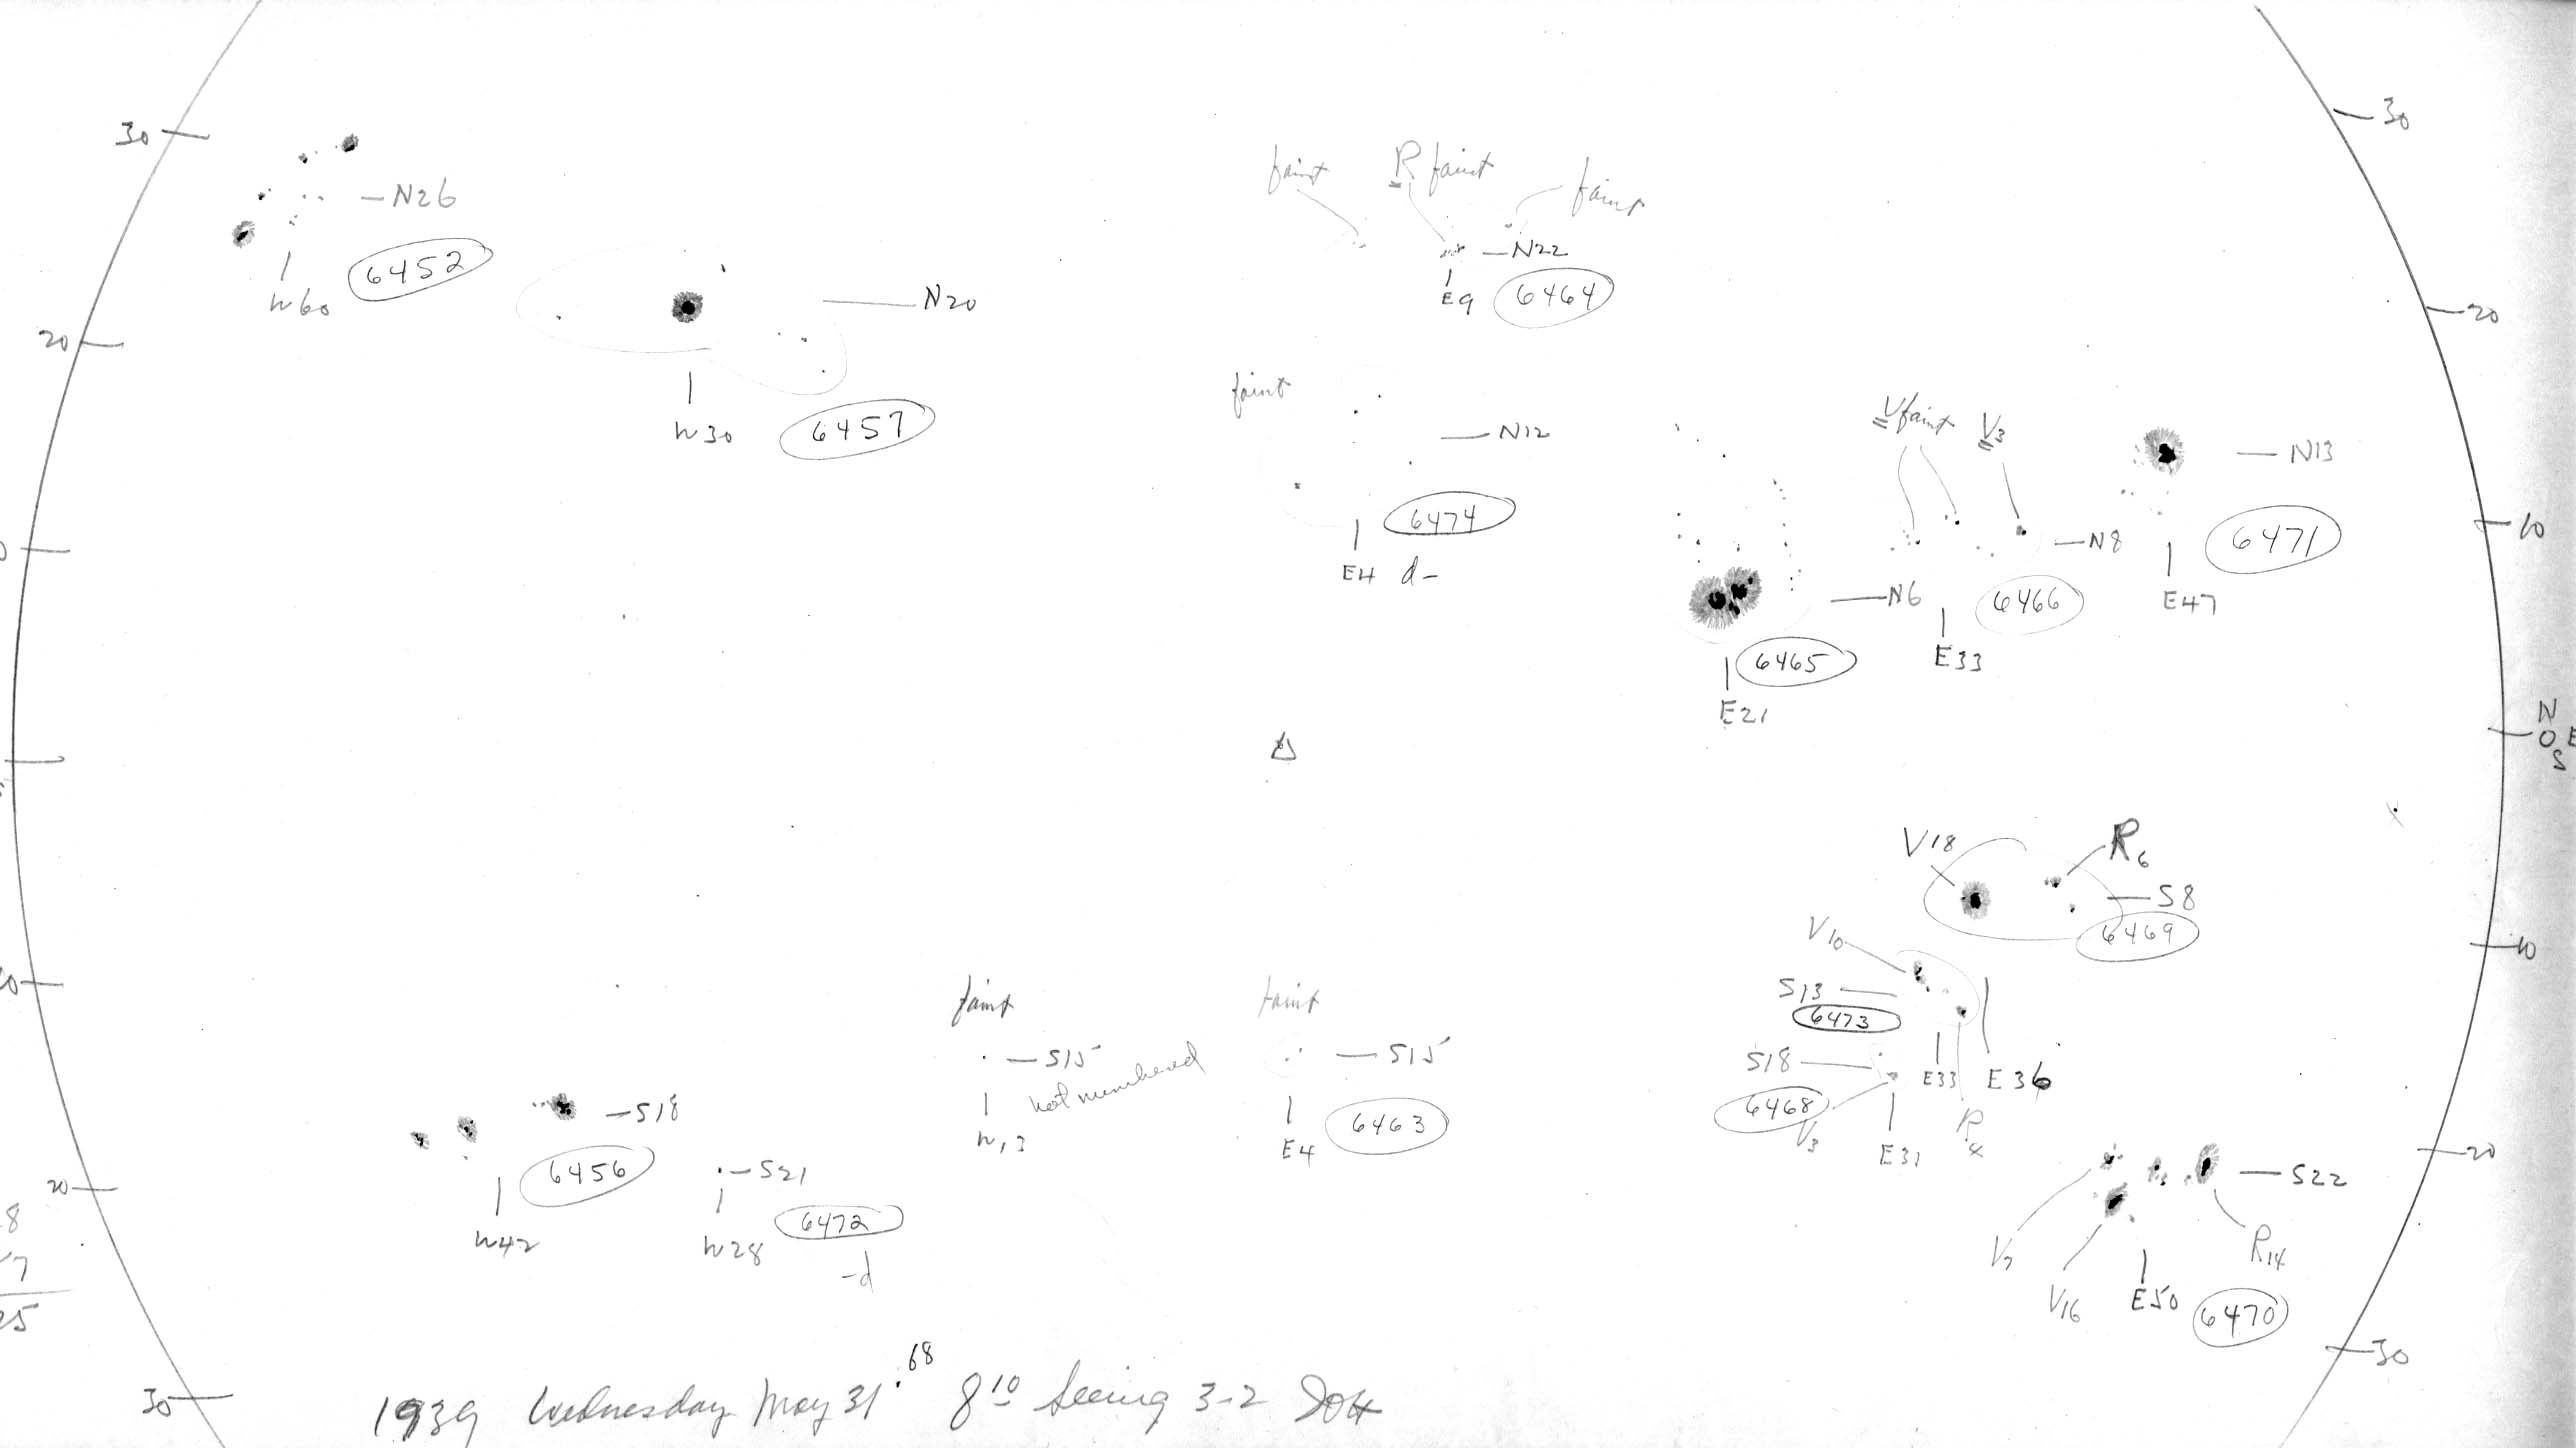 30
30
faint
R faint
faint
N26
N22
6452
W60
E9
6464
N20
20
20
faint
N12
Vfaint
V3
N13
W30
6457
6474
10
N8
6471
E4 d-
N6
6466
E47
6465
E33
E21
N
0 E
S
V18
R6
S8
6469
V10
10
S13
6473
faint
faint
S15
not numbered
S15
S18
E33
E36
6468
V3
R4
W13
E4
6463
E31
S18
6456
S21
20
20
S22
W42
6472
W28
-d
V7
R14
V16
E50
6470
8
7
25
30
30
1939 Wednesday May 31.68 8 10 Seeing 3-2